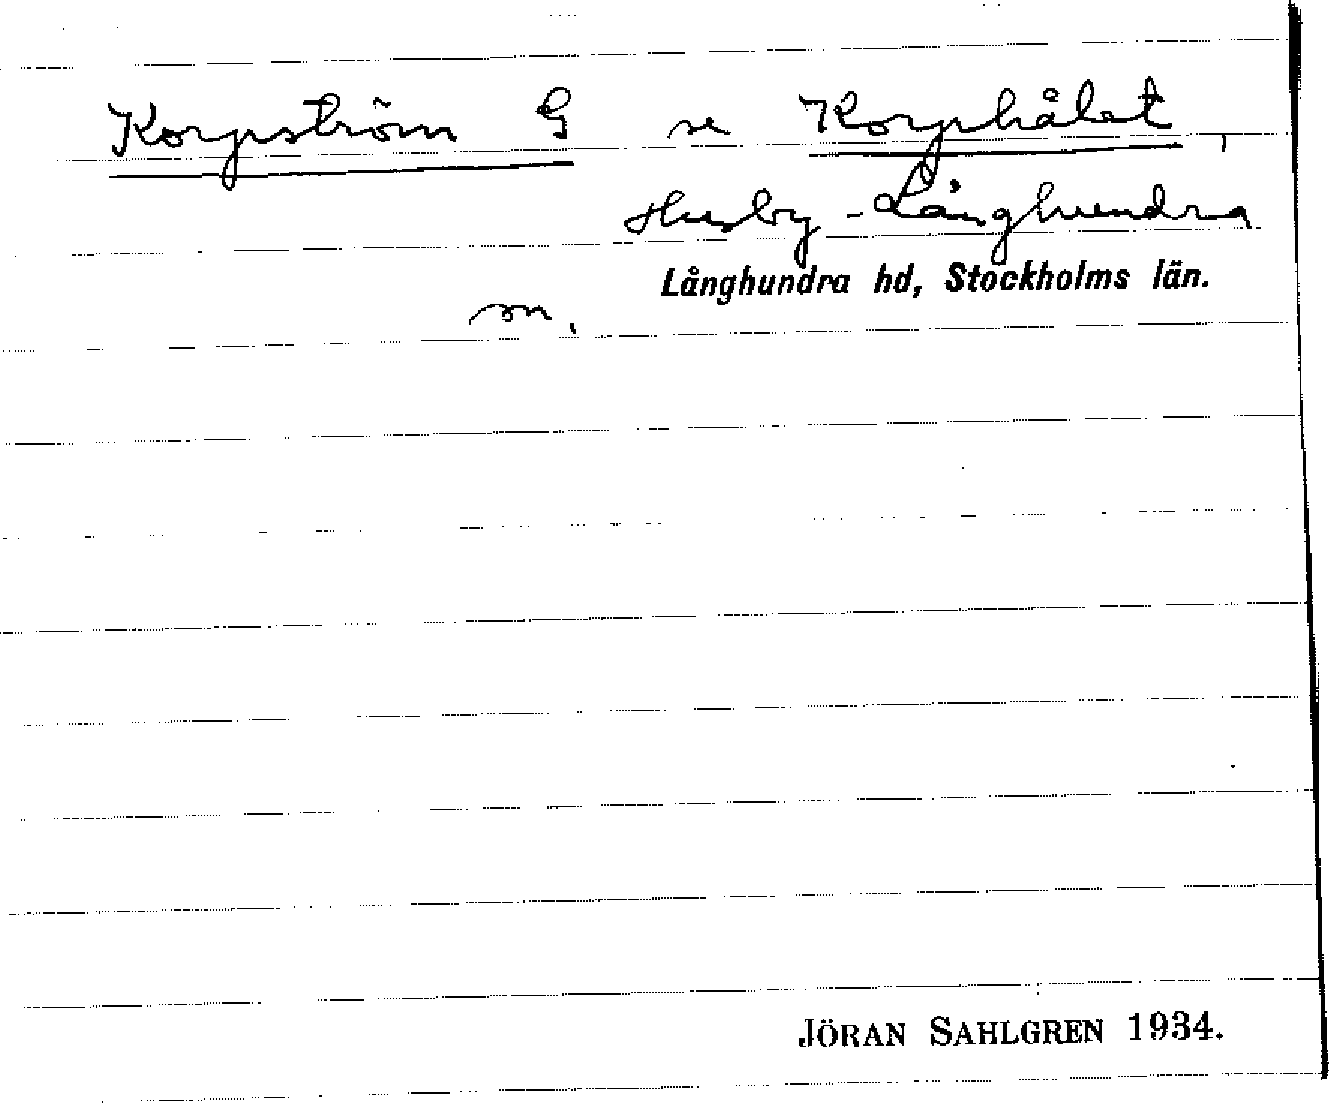 Korpström G se Korphålet,
Husby-Långhundra
Långhundra hd, Stockholms län.
sn.
JÖRAN SAHLGREN 1934.